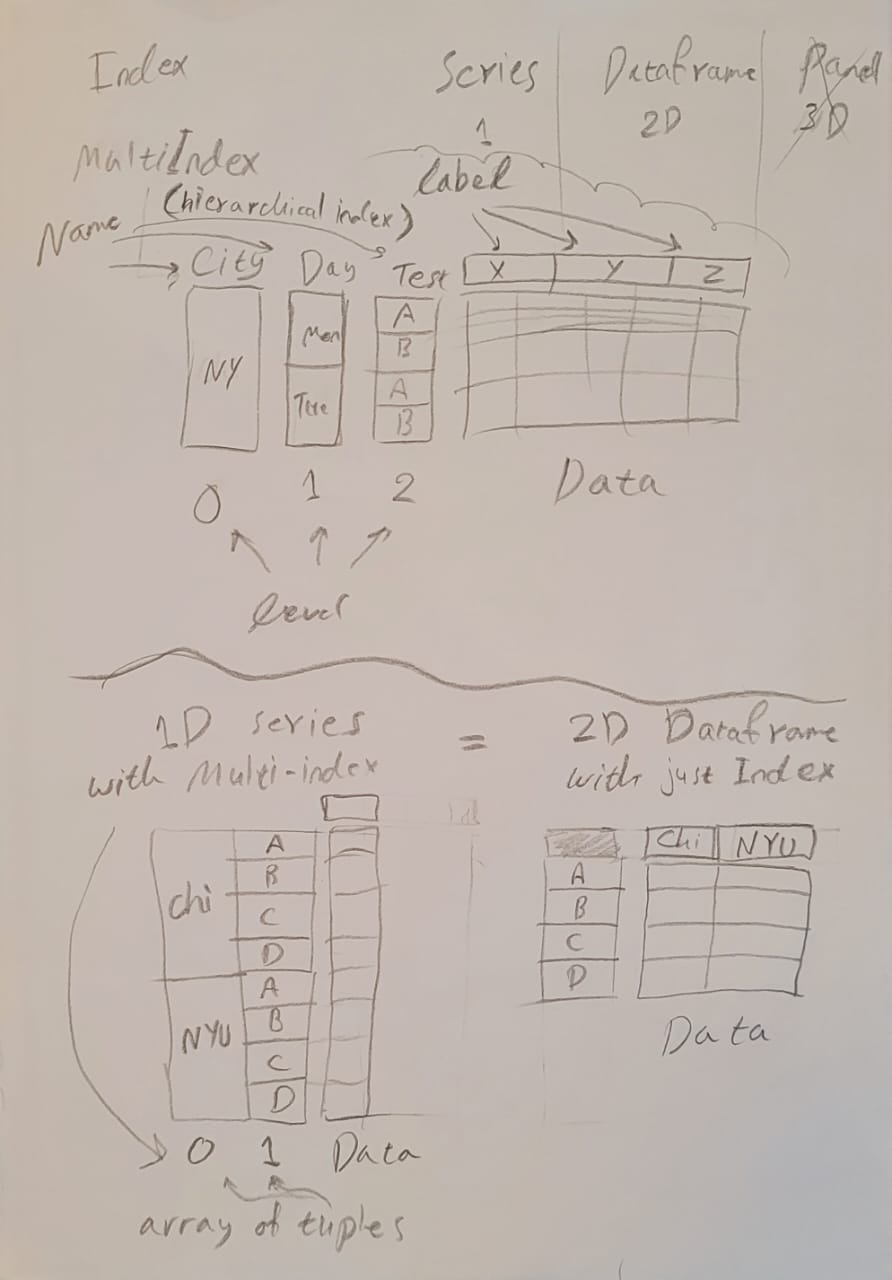 Index
Series
Dataframe
Panel
1
2D
3D
MultiIndex
(hierarchical index)
label
Name
City
Day
Test
X
Y
Z
NY
Mon
Tue
A
B
A
B
0
1
2
Data
level
1D series
with Multi-index
=
2D Dataframe
with just Index
Chi
A
B
C
D
NYU
A
B
C
D
0
1
Data
array of tuples
Chi
NYU
A
B
C
D
Data